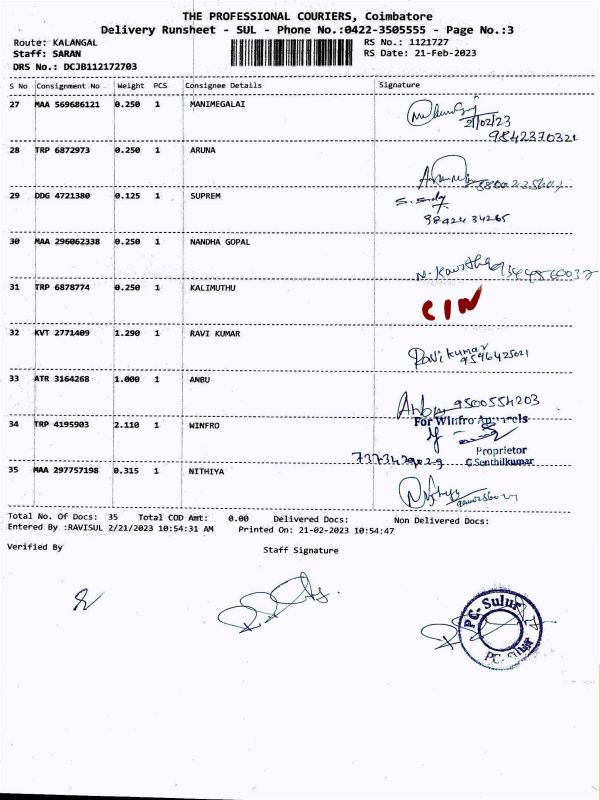 THE PROFESSIONAL COURIERS, Coimbatore
Delivery Runsheet - SUL - Phone No.:0422-3505555 - Page No.:3
Route: KALANGAL RS No.: 1121727
Staff: SARAN RS Date: 21-Feb-2023
DRS No.: DCJB112172703
S No Consignment No Weight PCS Consignee Details Signature
27 MAA 569686121 0.250 1 MANIMEGALAI
21/02/23
9842370321
28 TRP 6872973 0.250 1 ARUNA
29 DDG 4721380 0.125 1 SUPREM
98424 34265
30 MAA 296062338 0.250 1 NANDHA GOPAL
31 TRP 6878774 0.250 1 KALIMUTHU
CIN
32 KVT 2771409 1.290 1 RAVI KUMAR
Ravi kumar
9596425021
33 ATR 3164268 1.000 1 ANBU
Anbu 9500554203
34 TRP 4195903 2.110 1 WINFRO
For Winfro Apparels
Proprietor
C.Senthilkumar
35 MAA 297757198 0.315 1 NITHIYA
Total No. Of Docs: 35 Total COD Amt: 0.00 Delivered Docs: Non Delivered Docs:
Entered By :RAVISUL 2/21/2023 10:54:31 AM Printed On: 21-02-2023 10:54:47
Verified By Staff Signature
PC- Sulur
PC- Sulur